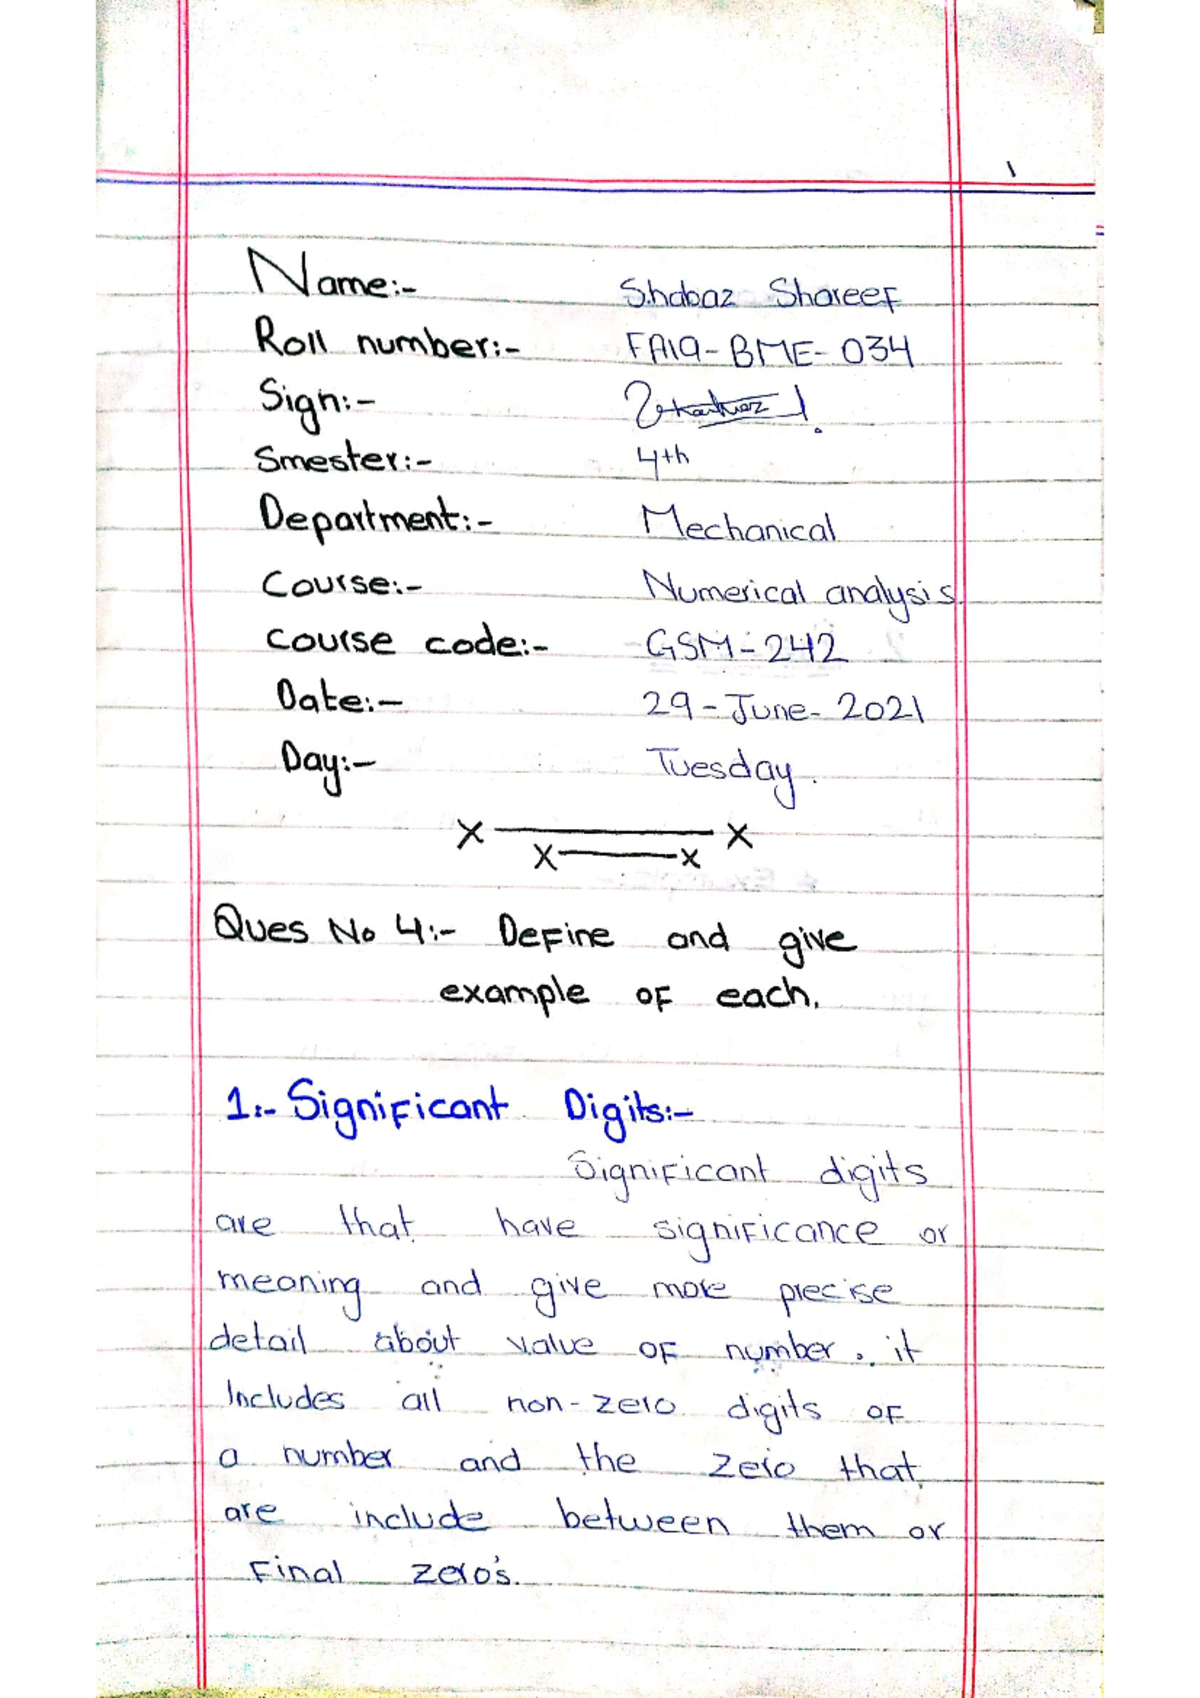 1
Name:- Shabaz Shareef
Roll number:- FA19-BME-034
Sign:-
Smester:- 4th
Department:- Mechanical
Course:- Numerical analysis.
course code:- GSM-242
Date:- 29-June-2021
Day:- Tuesday.
x x
x x
Ques No 4:- Define and give
example of each.
1:- Significant Digits:-
Significant digits
are that have significance or
meaning and give more precise
detail about value of number. it
Includes all non-zero digits of
a number and the zero that
are include between them or
Final zero's.